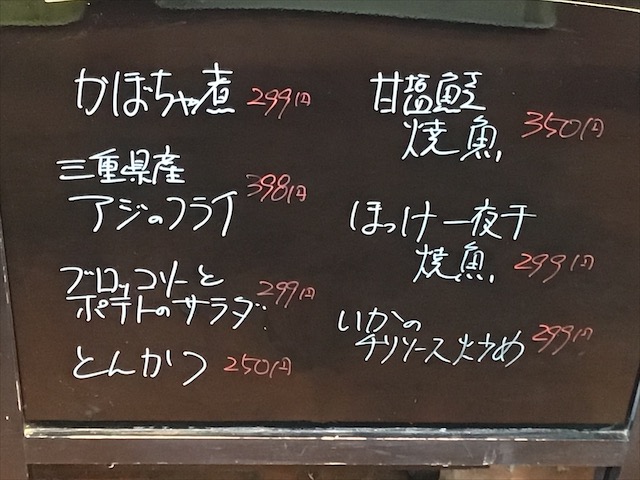 かぼちゃ煮 299円
三重県産
アジのフライ 398円
ブロッコリーと
ポテトのサラダ 299円
とんかつ 250円
甘塩鮭
焼魚 350円
ほっけ一夜干
焼魚 299円
いかの
チリソース炒め 299円